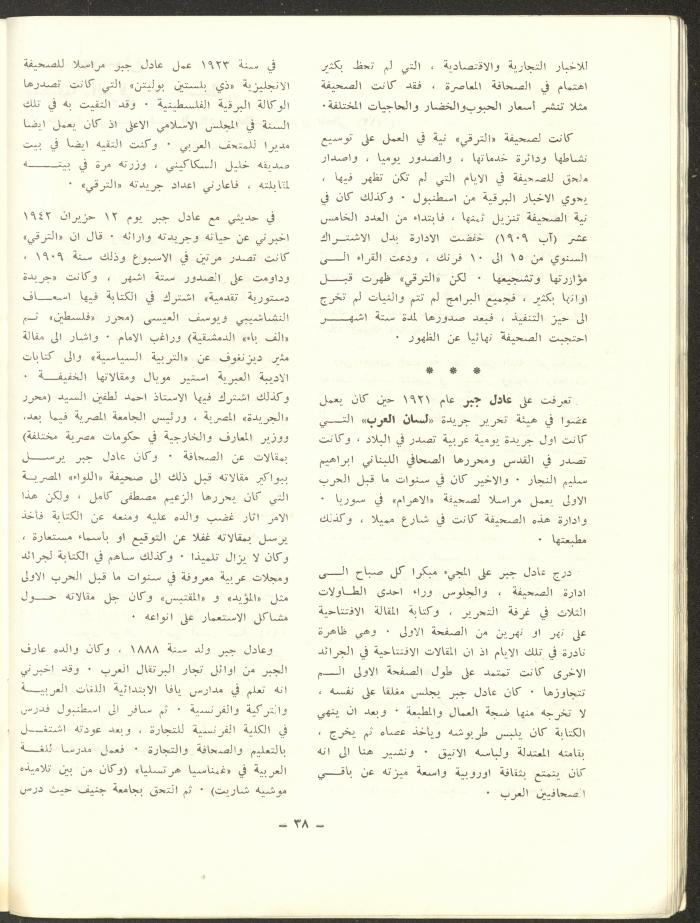 للاخبار التجارية والاقتصادية ، التي لم تحظ بكثير
اهتمام في الصحافة المعاصرة ، فقد كانت الصحيفة
مثلا تنشر أسعار الحبوب والخضار والحاجيات المختلفة.
كانت لصحيفة «الترقي» نية في العمل على توسيع
نشاطها ودائرة خدماتها ، والصدور يوميا ، واصدار
ملحق للصحيفة في الايام التي لم تكن تظهر فيها ،
يحوي الاخبار البرقية من اسطنبول ٠ وكذلك كان في
نية الصحيفة تنزيل ثمنها ، فابتداء من العدد الخامس
عشر (آب ١٩٠٩) خفضت الادارة بدل الاشتراك
السنوي من ١٥ الى ١٠ فرنك ، ودعت القراء الى
مؤازرتها وتشجيعها ٠ لكن «الترقي» ظهرت قبل
اوانها بكثير ، فجميع البرامج لم تتم والنيات لم تخرج
الى حيز التنفيذ ، فبعد صدورها لمدة ستة اشهر
احتجبت الصحيفة نهائيا عن الظهور ٠
* * *
تعرفت على عادل جبر عام ١٩٢١ حين كان يعمل
عضوا في هيئة تحرير جريدة «لسان العرب» التي
كانت اول جريدة يومية عربية تصدر في البلاد ، وكانت
تصدر في القدس ومحررها الصحافي اللبناني ابراهيم
سليم النجار ٠ والاخير كان في سنوات ما قبل الحرب
الاولى يعمل مراسلا لصحيفة «الاهرام» في سوريا ٠
وادارة هذه الصحيفة كانت في شارع مميلا ، وكذلك
مطبعتها ٠
درج عادل جبر على المجيء مبكرا كل صباح الى
ادارة الصحيفة ، والجلوس وراء احدى الطاولات
الثلاث في غرفة التحرير ، وكتابة المقالة الافتتاحية
على نهر او نهرين من الصفحة الاولى ٠ وهي ظاهرة
نادرة في تلك الايام اذ ان المقالات الافتتاحية في الجرائد
الاخرى كانت تمتد على طول الصفحة الاولى الم
تتجاوزها ٠ كان عادل جبر يجلس مغلقا على نفسه ،
لا تخرجه منها ضجة العمال والمطبعة ٠ وبعد ان ينهي
الكتابة كان يلبس طربوشه وياخذ عصاه ثم يخرج ،
بقامته المعتدلة ولباسه الانيق ٠ ونشير هنا الى انه
كان يتمتع بثقافة اوروبية واسعة ميزته عن باقي
الصحافيين العرب ٠
في سنة ١٩٢٣ عمل عادل جبر مراسلا للصحيفة
الانجليزية «ذي بلستين بوليتن» التي كانت تصدرها
الوكالة البرقية الفلسطينية ٠ وقد التقيت به في تلك
السنة في المجلس الاسلامي الاعلى اذ كان يعمل ايضا
مديرا للمتحف العربي ٠ وكنت التقيه ايضا في بيت
صديقه خليل السكاكيني ، وزرته مرة في بيته
لمقابلته ، فاعارني اعداد جريدته «الترقي» ٠
في حديثي مع عادل جبر يوم ١٢ حزيران ١٩٤٢
اخبرني عن حياته وجريدته وارائه ٠ قال ان «الترقي»
كانت تصدر مرتين في الاسبوع وذلك سنة ١٩٠٩ ،
وداومت على الصدور ستة اشهر ، وكانت «جريدة
دستورية تقدمية» اشترك في الكتابة فيها اسعاف
النشاشيبي ويوسف العيسى (محرر «فلسطين» ثم
«الف باء» الدمشقية) وراغب الامام ٠ واشار الى مقالة
مئير ديزنغوف عن «التربية السياسية» والى كتابات
الاديبة العبرية استير مويال ومقالاتها الخفيفة ٠
وكذلك اشترك فيها الاستاذ احمد لطفين السيد (محرر
«الجريدة» المصرية ، ورئيس الجامعة المصرية فيما بعد،
ووزير المعارف والخارجية في حكومات مصرية مختلفة)
بمقالات عن الصحافة ٠ وكان عادل جبر يرسل
ببواكير مقالاته قبل ذلك الى صحيفة «اللواء» المصرية
التي كان يحررها الزعيم مصطفى كامل ، ولكن هذا
الامر اثار غضب والده عليه ومنعه عن الكتابة فاخذ
يرسل بمقالاته غفلا عن التوقيع او باسماء مستعارة ،
وكان لا يزال تلميذا ٠ وكذلك ساهم في الكتابة لجرائد
ومجلات عربية معروفة في سنوات ما قبل الحرب الاولى
مثل «المؤيد» و «المقتبس» وكان جل مقالاته حول
مشاكل الاستعمار على انواعه ٠
وعادل جبر ولد سنة ١٨٨٨ ، وكان والده عارف
الجبر من اوائل تجار البرتقال العرب ٠ وقد اخبرني
انه تعلم في مدارس يافا الابتدائية اللغات العربية
والتركية والفرنسية ٠ ثم سافر الى اسطنبول فدرس
في الكلية الفرنسية للتجارة ، وبعد عودته اشتغل
بالتعليم والصحافة والتجارة ٠ فعمل مدرسا للغة
العربية في «غمناسيا هرتسليا» (وكان من بين تلاميذه
موشيه شاريت) ٠ ثم التحق بجامعة جنيف حيث درس
– ٣٨ –